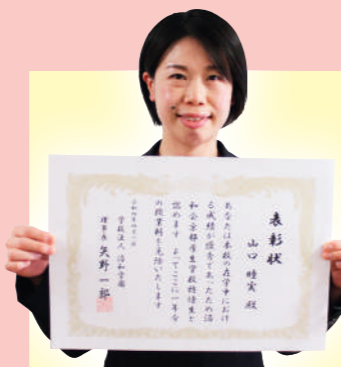 表彰状
山口瞳実 殿
あなたは本校の在学中におけ
る成績が優秀であったため浩
和会京都厚生学校特待生と
認めます よってここに一年分
の授業料を免除いたします
学校法人 浩和学園
理事長 矢野一郎